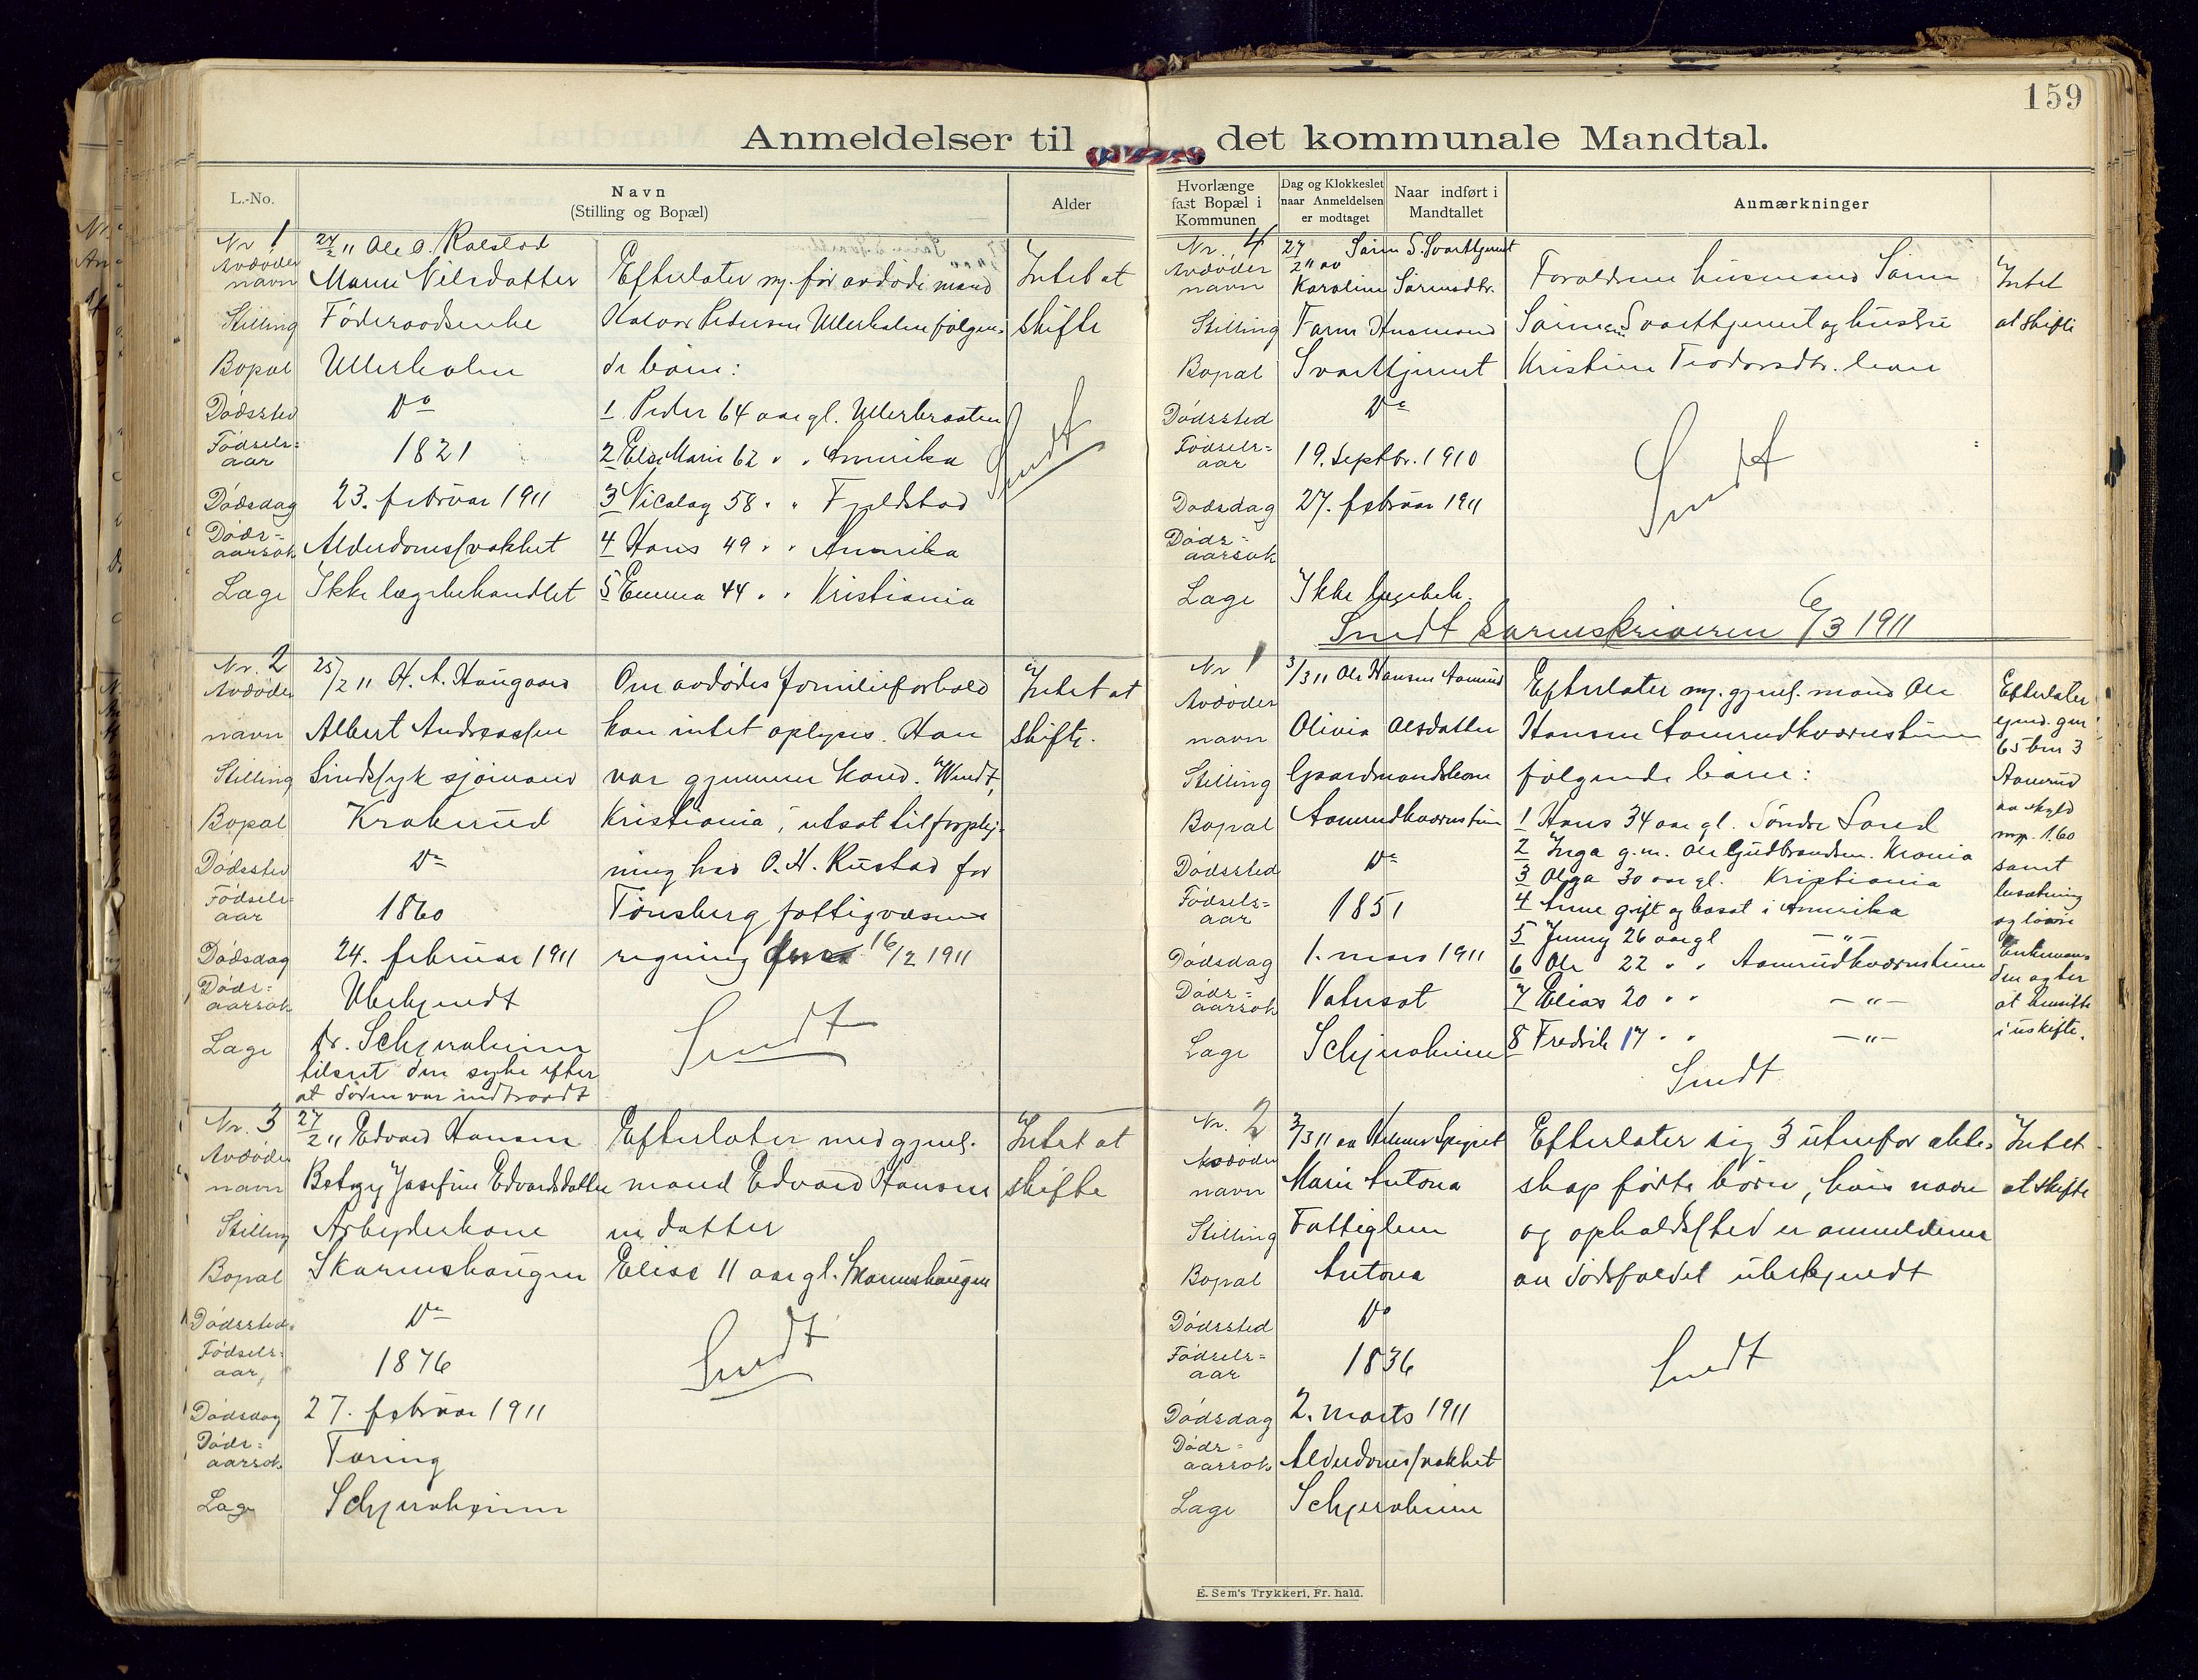 159
Anmeldelser til det kommunale Mandtal.
L.-No.
Navn
(Stilling og Bopæl)
Alder
Nr 1
24/2 11 Ole O. Kolstad
Avdødes navn
Marie Nilsdatter
Stilling
Føderaadsenke
Bopæl
Ullerholen
Dødssted
Do
Fødselsaar
1821
Dødsdag
23. februar 1911
Dødsaarsak
Alderdomssvakhet
Læge
Ikke lægebehandlet
Efterlater m. før avdøde mand
Halvor Pedersen Ullerholen følgen-
de børn:
1 Peder 64 aar gl. Ullerbraaten
2 Else Marie 62 " " Amerika
3 Nicolay 58 " " Fjeldstad
4 Hans 49 " " Amerika
5 Emma 44 " " Kristiania
Intet at
skifte
Sendt
Nr. 2
25/2 11 H. A. Haugaas
Avdødes
navn
Albert Andreassen
Stilling
Sindssyk sjømand
Bopæl
Krakerud
Dødssted
Do
Fødselsaar
1860
Dødsdag
24. februar 1911
Dødsaarsak
Ubekjendt
Læge
Dr. Schjerveheim
tilset den syke efter
at døden var indtraadt
Om avdødes familieforhold
kan intet oplyses. Han
var gjennem kand. Wendt,
Kristiania, utsat til forplei-
ning hos O. H. Rustad for
Tønsberg fattigvæsens
regning 16/2 1911
Sendt
Intet at
skifte.
Nr. 3
27/2 11 Edvard Hansen
Avdødes
navn
Betzy Josefine Edvardsdatter
Stilling
Arbeiderkone
Bopæl
Skarnshaugen
Dødssted
Do
Fødselsaar
1876
Dødsdag
27. februar 1911
Dødsaarsak
Tæring
Læge
Schjerveheim
Efterlater med gjenl.
mand Edvard Hansen
en datter
Elise 11 aar gl. Skarnshaugen
Sendt
Intet at
skifte
Hvorlænge
fast Bopæl i
Kommunen
Dag og Klokkeslet
naar Anmeldelsen
er modtaget
Naar indført i
Mandtallet
Anmærkninger
Nr. 4
27/2 11 av Søren S. Svarttjernet
Avdødes
navn
Karoline Sørensdtr.
Stilling
Faren Husmand
Bopæl
Svarttjernet
Dødssted
Do
Fødselsaar
19. Septbr. 1910
Dødsdag
27. februar 1911
Dødsaarsak
Læge
Ikke lægebeh.
Forældrene husmand Søren
Sørensen Svarttjernet og hustru
Kristine Teodorsdtr. lever
Sendt
Intet
at skifte
Sendt Sorenskriveren 6/3 1911
Nr 1
3/3 11 Ole Hansen Aamrud
Avdødes
navn
Olivia Olsdatter
Stilling
Gaardmandskone
Bopæl
Aamrudkvernstuen
Dødssted
Do
Fødselsaar
1851
Dødsdag
1. mars 1911
Dødsaarsak
Vatersot
Læge
Schjerveheim
Efterlater m. gjenl. mand Ole
Hansen Aamrudkvernstuen
følgende børn:
1 Hans 34 aar gl. Søndre Sand
2 Inga g.m. Ole Gudbrandsen. Krania
3 Olga 30 aar gl. Kristiania
4 Anne gift og bosat i Amerika
5 Jenny 26 aar gl —"—
6 Ole 22 " " Aamrudkvernstuen
7 Elias 20 " " —"—
8 Fredrik 17 " " —"—
Sendt
Efterlater
eiend. gnr
65 bnr 3
Aamrud
av skyld
mrk. 1.60
samt
besætning
og løsøre
Enkeman-
den agter
at hensitte
i uskifte.
Nr. 2
3/3 11 av
Avdødes
navn
Marie Antona
Stilling
Fattiglem
Bopæl
Antona
Dødssted
Do
Fødselsaar
1836
Dødsdag
2. marts 1911
Dødsaarsak
Alderdomssvakhet
Læge
Schjerveheim
Efterlater sig 3 utenfor ekte-
skap fødte børn, hvis navn
og opholdssted er anmelderen
av dødsfaldet ubekjendt
Sendt
Intet
at skifte
E. Sem's Trykkeri, Fr. hald.